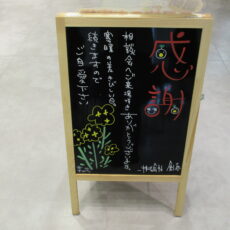 感謝
相談会へご来場頂き
ありがとうございます。
寒暖の差きびしい日
続きますので
ご自愛下さい